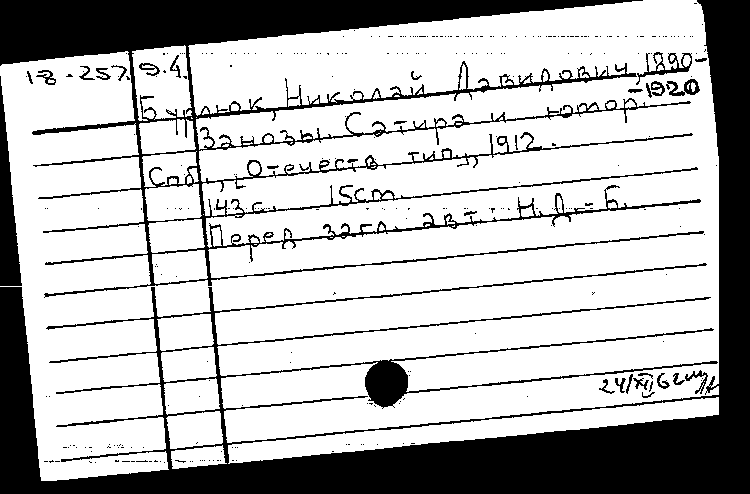 18.257.9.4.
Бурлюк, Николай Давидович, 1890-
-1920
Занозы. Сатира и юмор.
Спб., [Отечеств. тип.], 1912.
143с. 15cm.
Перед загл. авт.: Н.Д.-Б.
24/XII 62